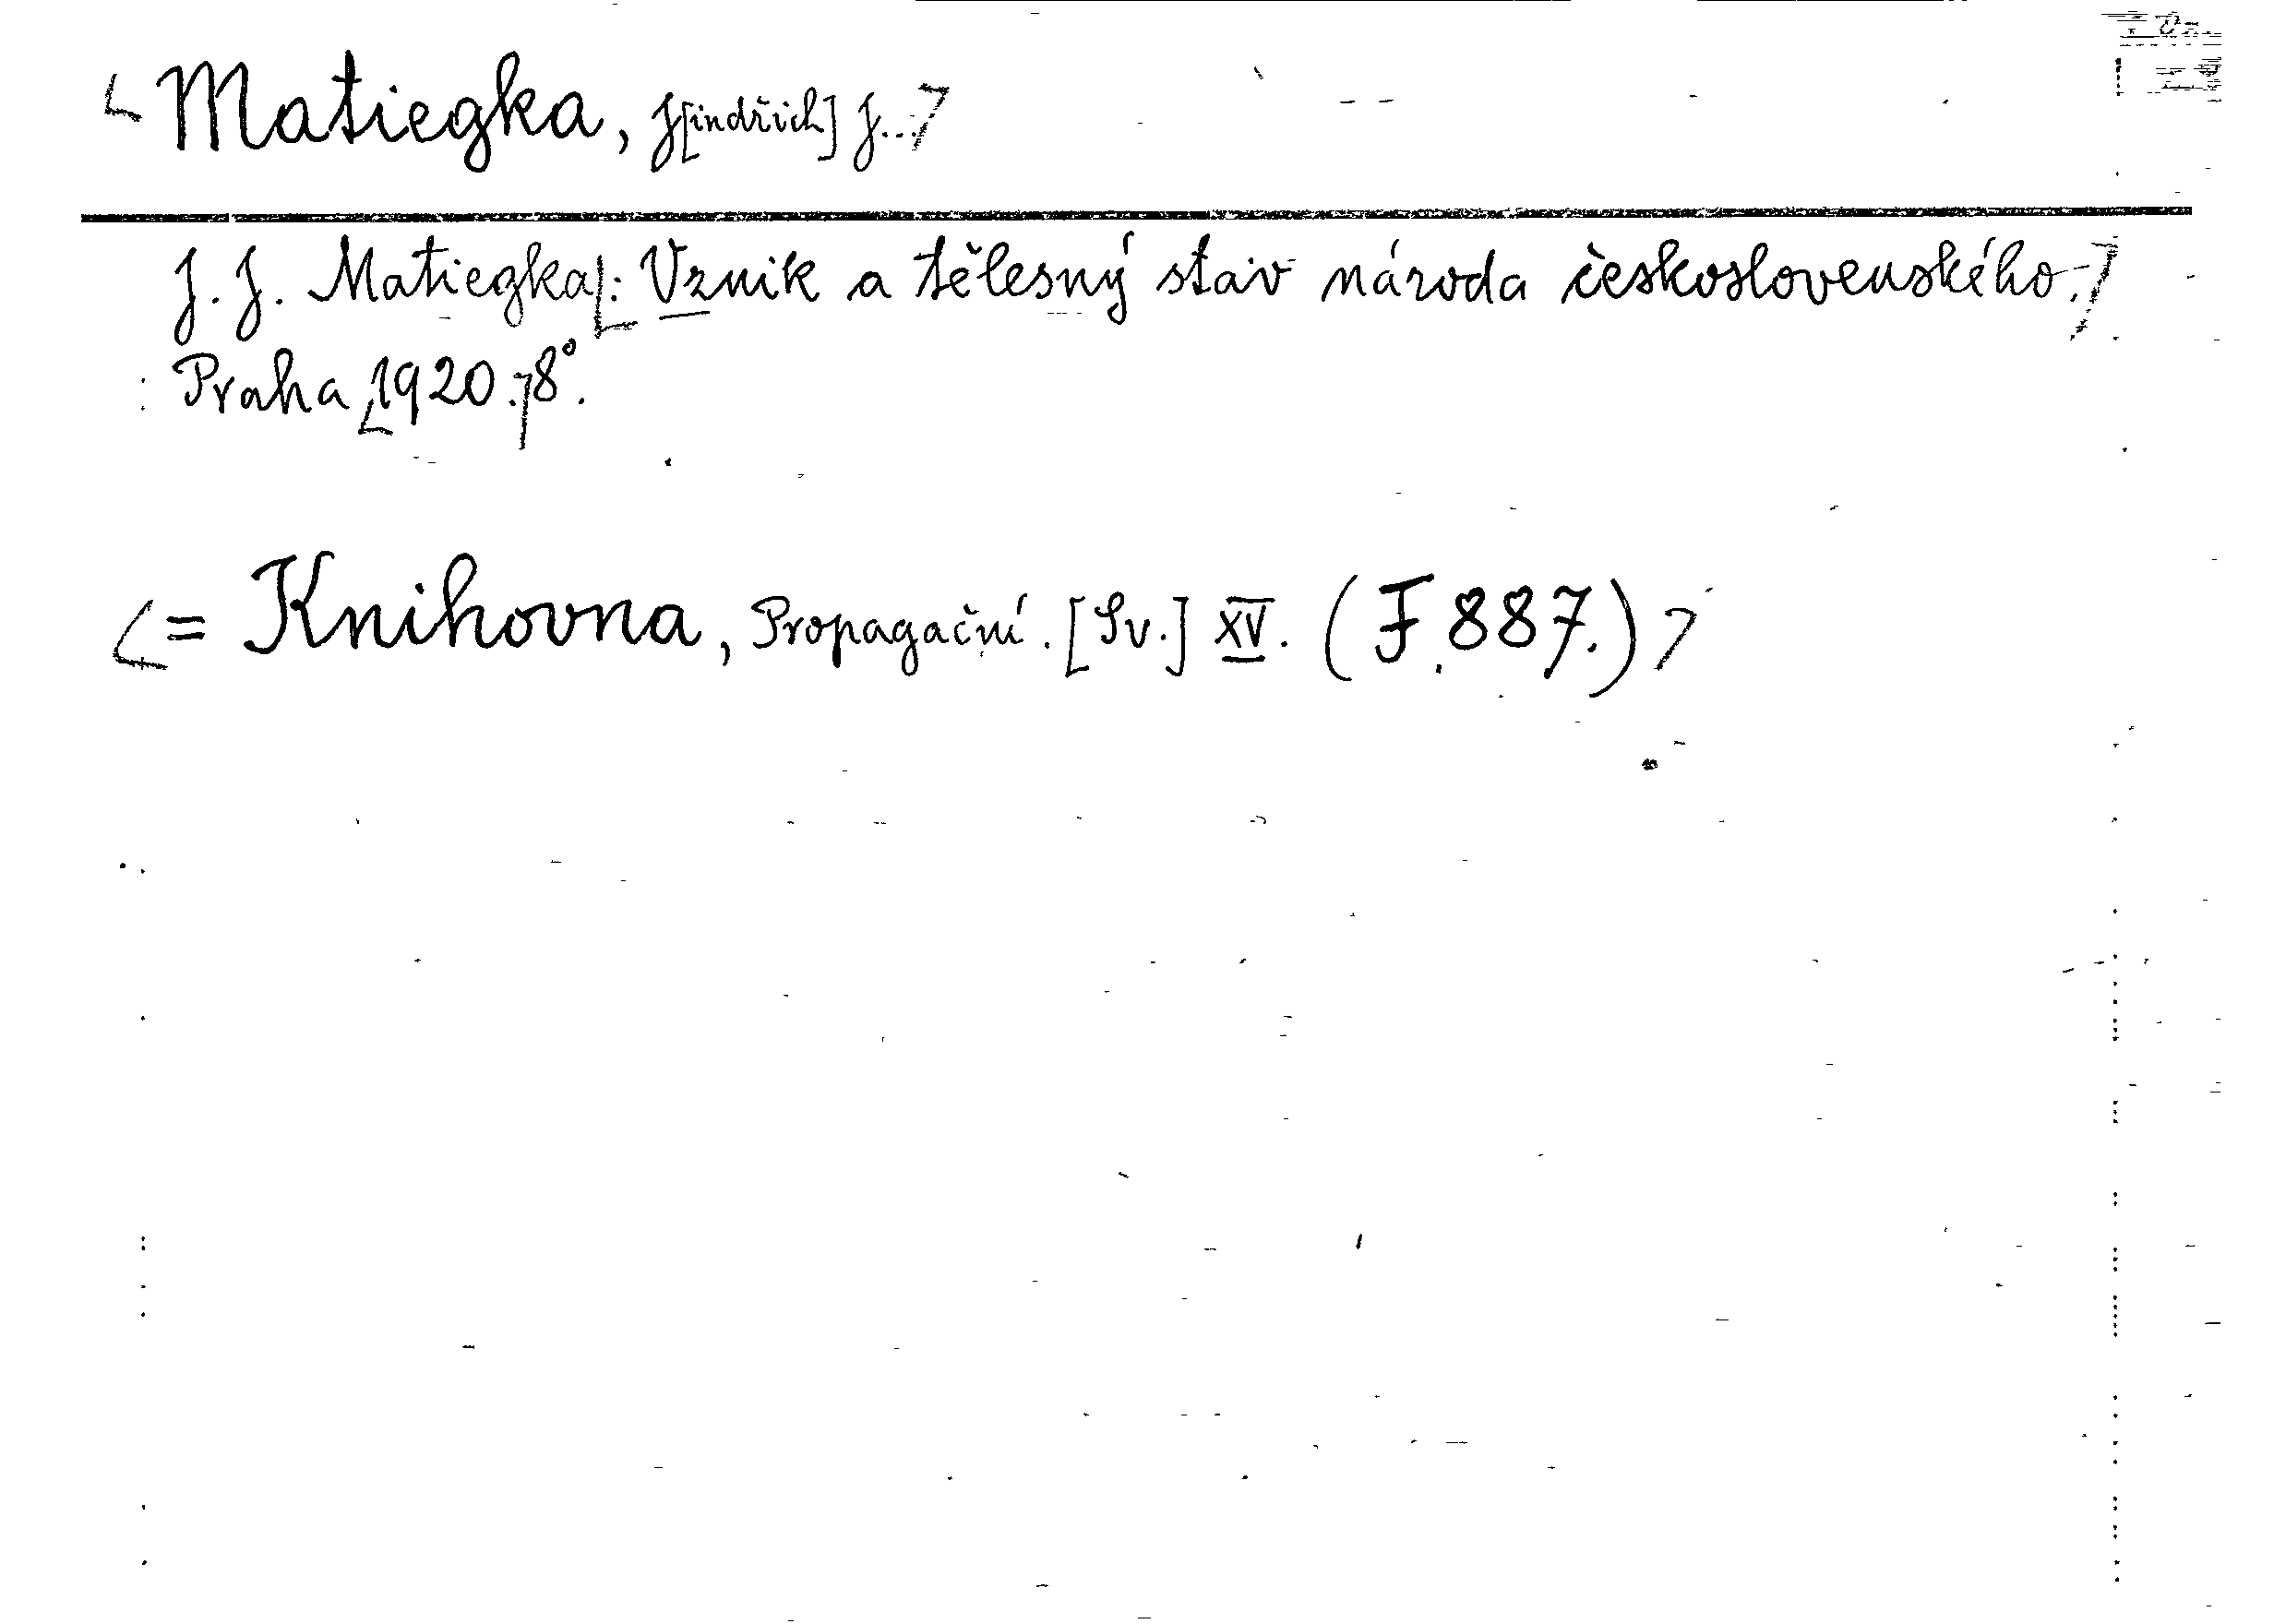 Matiegka, J[indřich] J...
J. J. Matiegka: Vznik a tělesný stav národa československého.
Praha, 1920. 8°.
= Knihovna, Propagační. [Sv.] XV. (F. 887.)